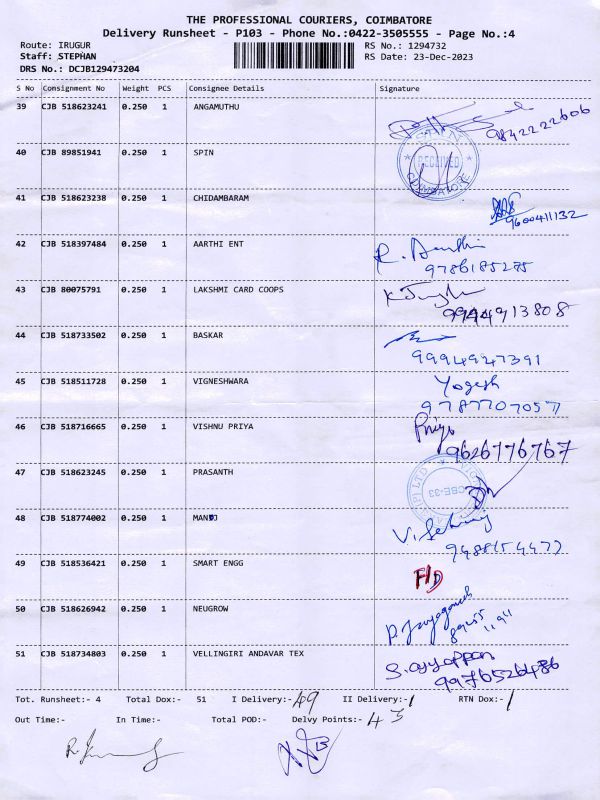 THE PROFESSIONAL COURIERS, COIMBATORE
Delivery Runsheet - P103 - Phone No.:0422-3505555 - Page No.:4
Route: IRUGUR RS No.: 1294732
Staff: STEPHAN RS Date: 23-Dec-2023
DRS No.: DCJB129473204
S No Consignment No Weight PCS Consignee Details Signature
39 CJB 518623241 0.250 1 ANGAMUTHU
9842222606
40 CJB 89851941 0.250 1 SPIN
RECEIVED
COIMBATORE
41 CJB 518623238 0.250 1 CHIDAMBARAM
9600411132
42 CJB 518397484 0.250 1 AARTHI ENT
R. Aarthi
9786185285
43 CJB 80075791 0.250 1 LAKSHMI CARD COOPS
9944913808
44 CJB 518733502 0.250 1 BASKAR
9994947391
45 CJB 518511728 0.250 1 VIGNESHWARA
Yogesh
9787707057
46 CJB 518716665 0.250 1 VISHNU PRIYA
Priya
9626776767
47 CJB 518623245 0.250 1 PRASANTH
CBE-33
48 CJB 518774002 0.250 1
49 CJB 518536421 0.250 1 SMART ENGG
50 CJB 518626942 0.250 1 NEUGROW
51 CJB 518734803 0.250 1 VELLINGIRI ANDAVAR TEX
S. ayyappan
9976526486
Tot. Runsheet:- 4 Total Dox:- 51 I Delivery:- 49 II Delivery:- 1 RTN Dox:- 1
Out Time:- In Time:- Total POD:- Delvy Points:- 43